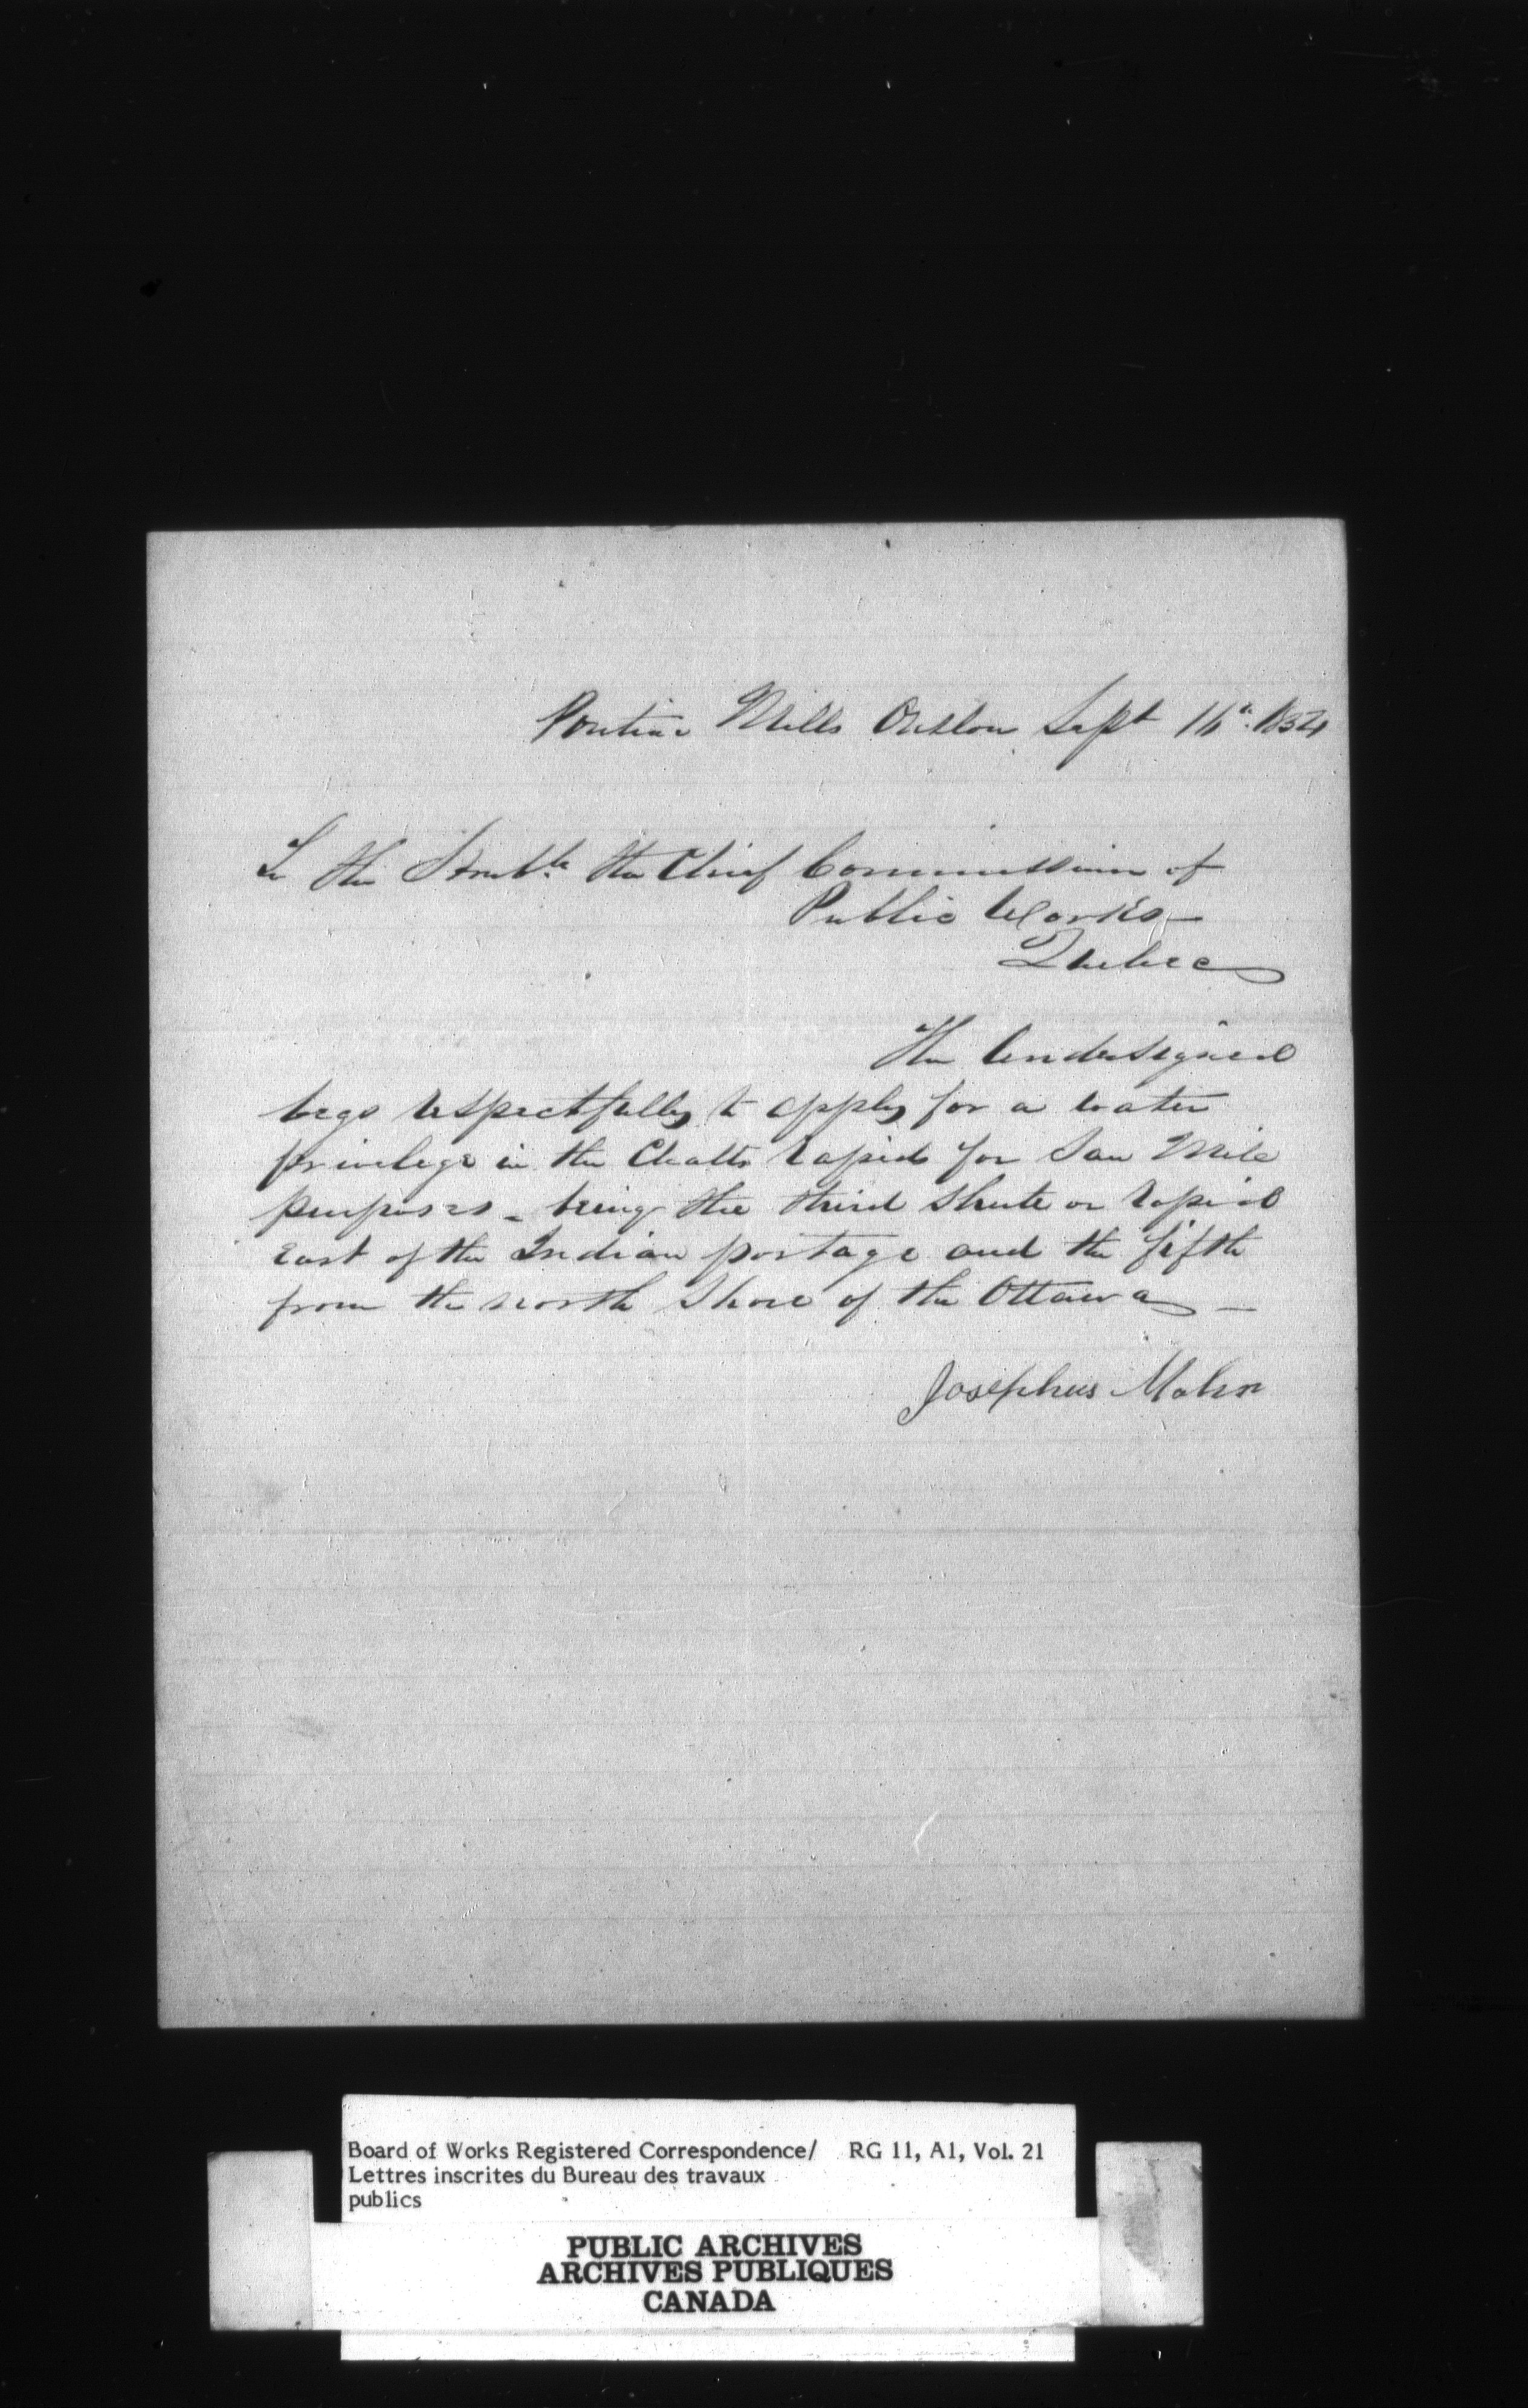 Pontiac Mills Onslow Sept 16th 1854
To the Honble the Chief Commissioner of
Public Works—
Quebec
The Undersigned
begs respectfully to apply for a water
privelege in the Chatts rapids for Saw Mill
purposes – being the third Shute or rapid
East of the Indian portage and the fifth
from the north Shore of the Ottawa —
Josephus
Board of Works Registered Correspondence/ RG 11, A1, Vol. 21
Lettres inscrites du Bureau des travaux
publics
PUBLIC ARCHIVES
ARCHIVES PUBLIQUES
CANADA